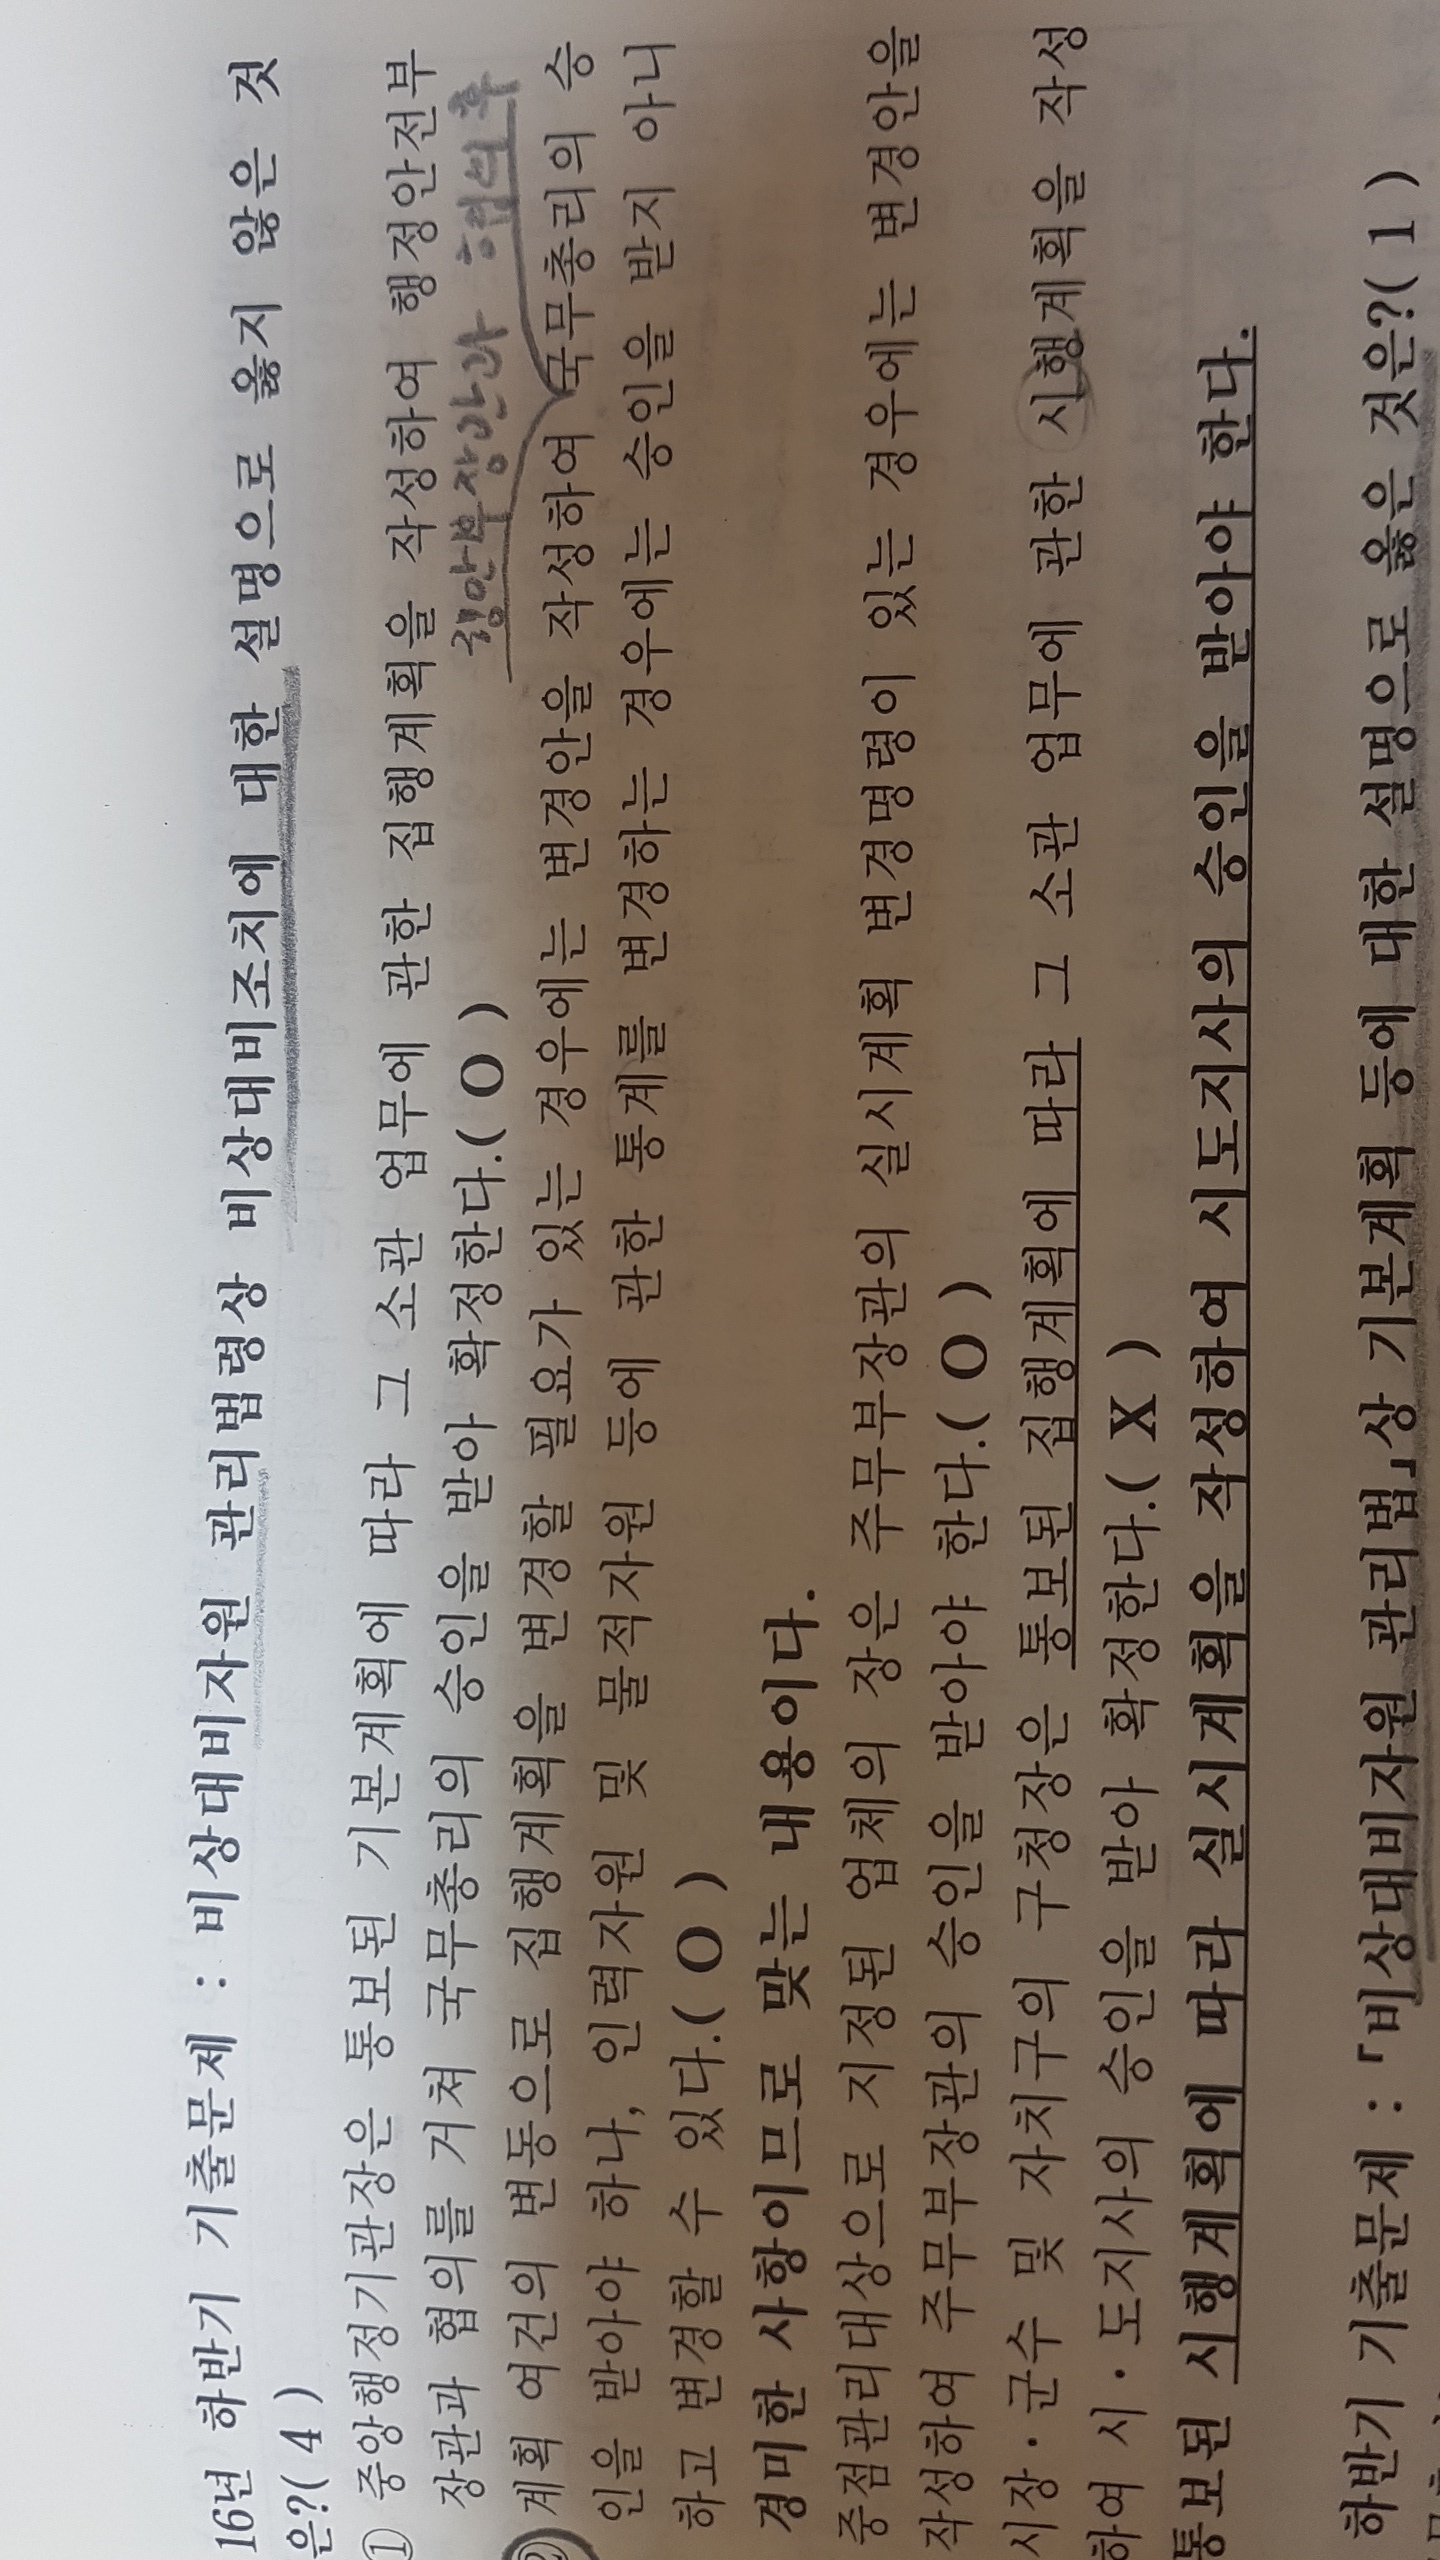 16년 하반기 기출문제 : 비상대비자원 관리법령상 비상대비조치에 대한 설명으로 옳지 않은 것
은?( 4 )
① 중앙행정기관장은 통보된 기본계획에 따라 그 소관 업무에 관한 집행계획을 작성하여 행정안전부
장관과 협의를 거쳐 국무총리의 승인을 받아 확정한다.( O )
행안부장관과 협의후
② 계획 여건의 변동으로 집행계획을 변경할 필요가 있는 경우에는 변경안을 작성하여 국무총리의 승
인을 받아야 하나, 인력자원 및 물적자원 등에 관한 통계를 변경하는 경우에는 승인을 받지 아니
하고 변경할 수 있다.( O )
경미한 사항이므로 맞는 내용이다.
중점관리대상으로 지정된 업체의 장은 주무부장관의 실시계획 변경명령이 있는 경우에는 변경안을
작성하여 주무부장관의 승인을 받아야 한다.( O )
시장·군수 및 자치구의 구청장은 통보된 집행계획에 따라 그 소관 업무에 관한 시행계획을 작성
하여 시·도지사의 승인을 받아 확정한다.( X )
통보된 시행계획에 따라 실시계획을 작성하여 시도지사의 승인을 받아야 한다.
하반기 기출문제 : 「비상대비자원 관리법」상 기본계획 등에 대한 설명으로 옳은 것은?( 1 )